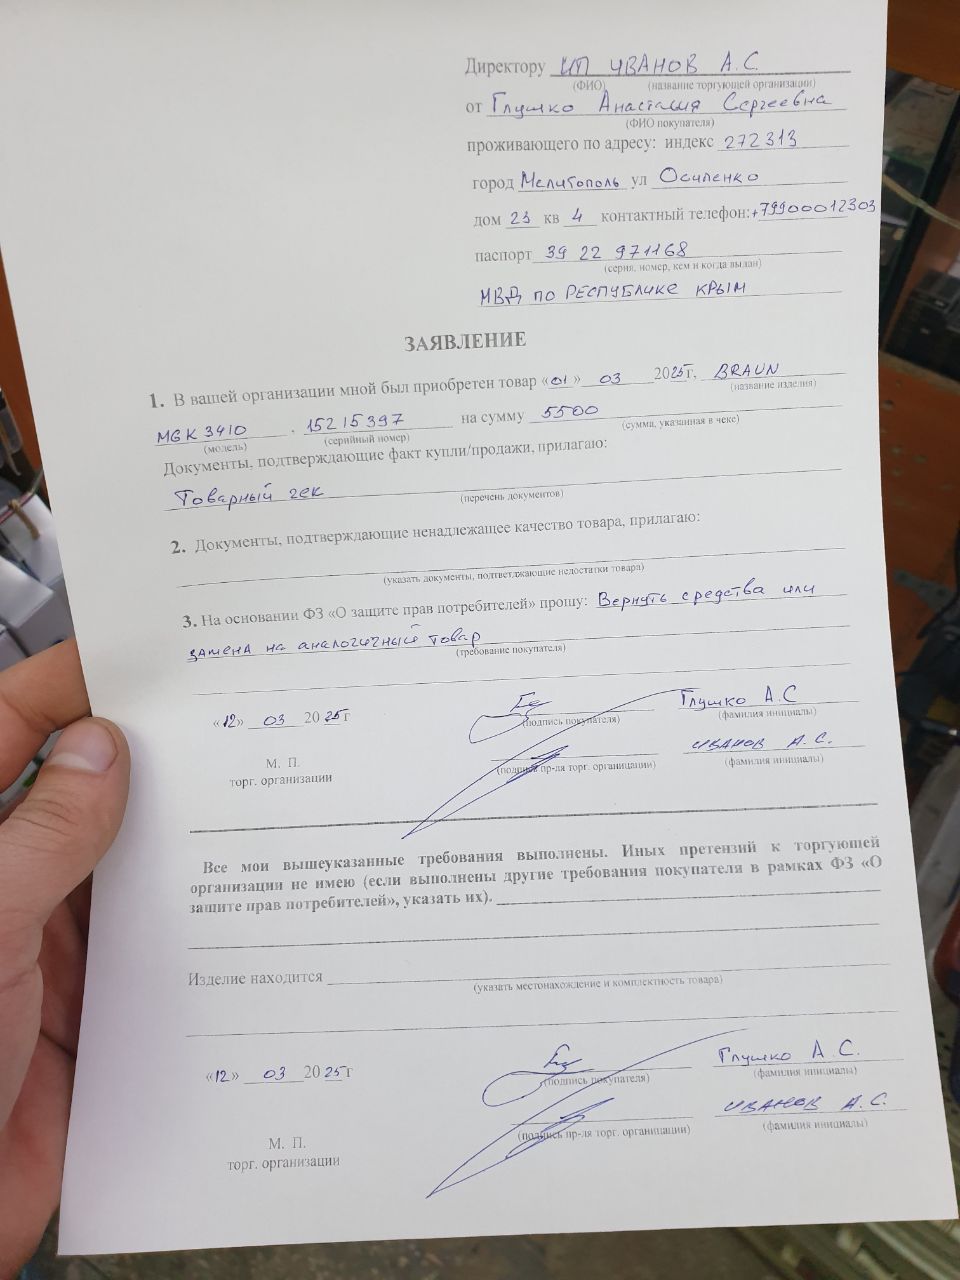 Директору ИП ИВАНОВ А.С.
(ФИО) (название торгующей организации)
от Глушко Анастасия Сергеевна
(ФИО покупателя)
проживающего по адресу: индекс 272313
город Мелитополь ул Осипенко
дом 23 кв 4 контактный телефон: +79900012303
паспорт 39 22 971168
(серия, номер, кем и когда выдан)
МВД по РЕСПУБЛИКЕ КРЫМ
ЗАЯВЛЕНИЕ
1. В вашей организации мной был приобретен товар «01» 03 2025г, BRAUN
(название изделия)
MGK 3410 , 15215397 на сумму 5500
(модель) (серийный номер) (сумма, указанная в чеке)
Документы, подтверждающие факт купли/продажи, прилагаю:
Товарный чек
(перечень документов)
2. Документы, подтверждающие ненадлежащее качество товара, прилагаю:
(указать документы, подтветджающие недостатки товара)
3. На основании ФЗ «О защите прав потребителей» прошу: Вернуть средства или
замена на аналогичный товар
(требование покупателя)
«12» 03 2025г Глушко А.С
(подпись покупателя) (фамилия инициалы)
ИВАНОВ А.С.
М. П. (подпись пр-ля торг. организации) (фамилия инициалы)
торг. организации
Все мои вышеуказанные требования выполнены. Иных претензий к торгующей
организации не имею (если выполнены другие требования покупателя в рамках ФЗ «О
защите прав потребителей», указать их).
Изделие находится
(указать местонахождение и комплектность товара)
«12» 03 2025г Глушко А.С.
(подпись покупателя) (фамилия инициалы)
ИВАНОВ А.С.
М. П. (подпись пр-ля торг. организации) (фамилия инициалы)
торг. организации